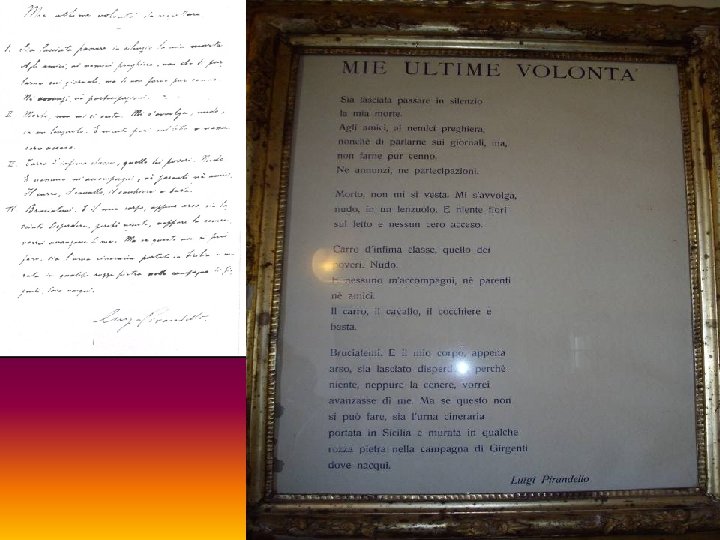 Mie ultime volontà da rispettare
I. Sia lasciata passare in silenzio la mia morte.
Agli amici, ai nemici preghiera, non che di par-
larne sui giornali, ma di non farne pur cenno.
Nè annunzi, nè partecipazioni.
II. Morto, non mi si vesta. Mi s'avvolga, nudo,
in un lenzuolo. E niente fiori sul letto e nessun
cero acceso.
III. Carro d'infima classe, quello dei poveri. Nudo.
E nessuno m'accompagni, nè parenti nè amici.
Il carro, il cavallo, il cocchiere e basta.
IV. Bruciatemi. E il mio corpo, appena arso, sia la-
sciato disperdere; perchè niente, neppure la cenere,
vorrei avanzasse di me. Ma se questo non si può
fare, sia l'urna cineraria portata in Sicilia e mu-
rata in qualche rozza pietra nella campagna di Gir-
genti, dove nacqui.
Luigi Pirandello.
MIE ULTIME VOLONTA'
Sia lasciata passare in silenzio
la mia morte.
Agli amici, ai nemici preghiera,
nonchè di parlarne sui giornali, ma,
non farne pur cenno.
Ne annunzi, ne partecipazioni.
Morto, non mi si vesta. Mi s'avvolga,
nudo, in un lenzuolo. E niente fiori
sul letto e nessun cero acceso.
Carro d'infima classe, quello dei
poveri. Nudo.
E nessuno m'accompagni, nè parenti
nè amici.
Il carro, il cavallo, il cocchiere e
basta.
Bruciatemi. E il mio corpo, appena
arso, sia lasciato disperdere perchè
niente, neppure la cenere, vorrei
avanzasse di me. Ma se questo non
si può fare, sia l'urna cineraria
portata in Sicilia e murata in qualche
rozza pietra nella campagna di Girgenti
dove nacqui.
Luigi Pirandello